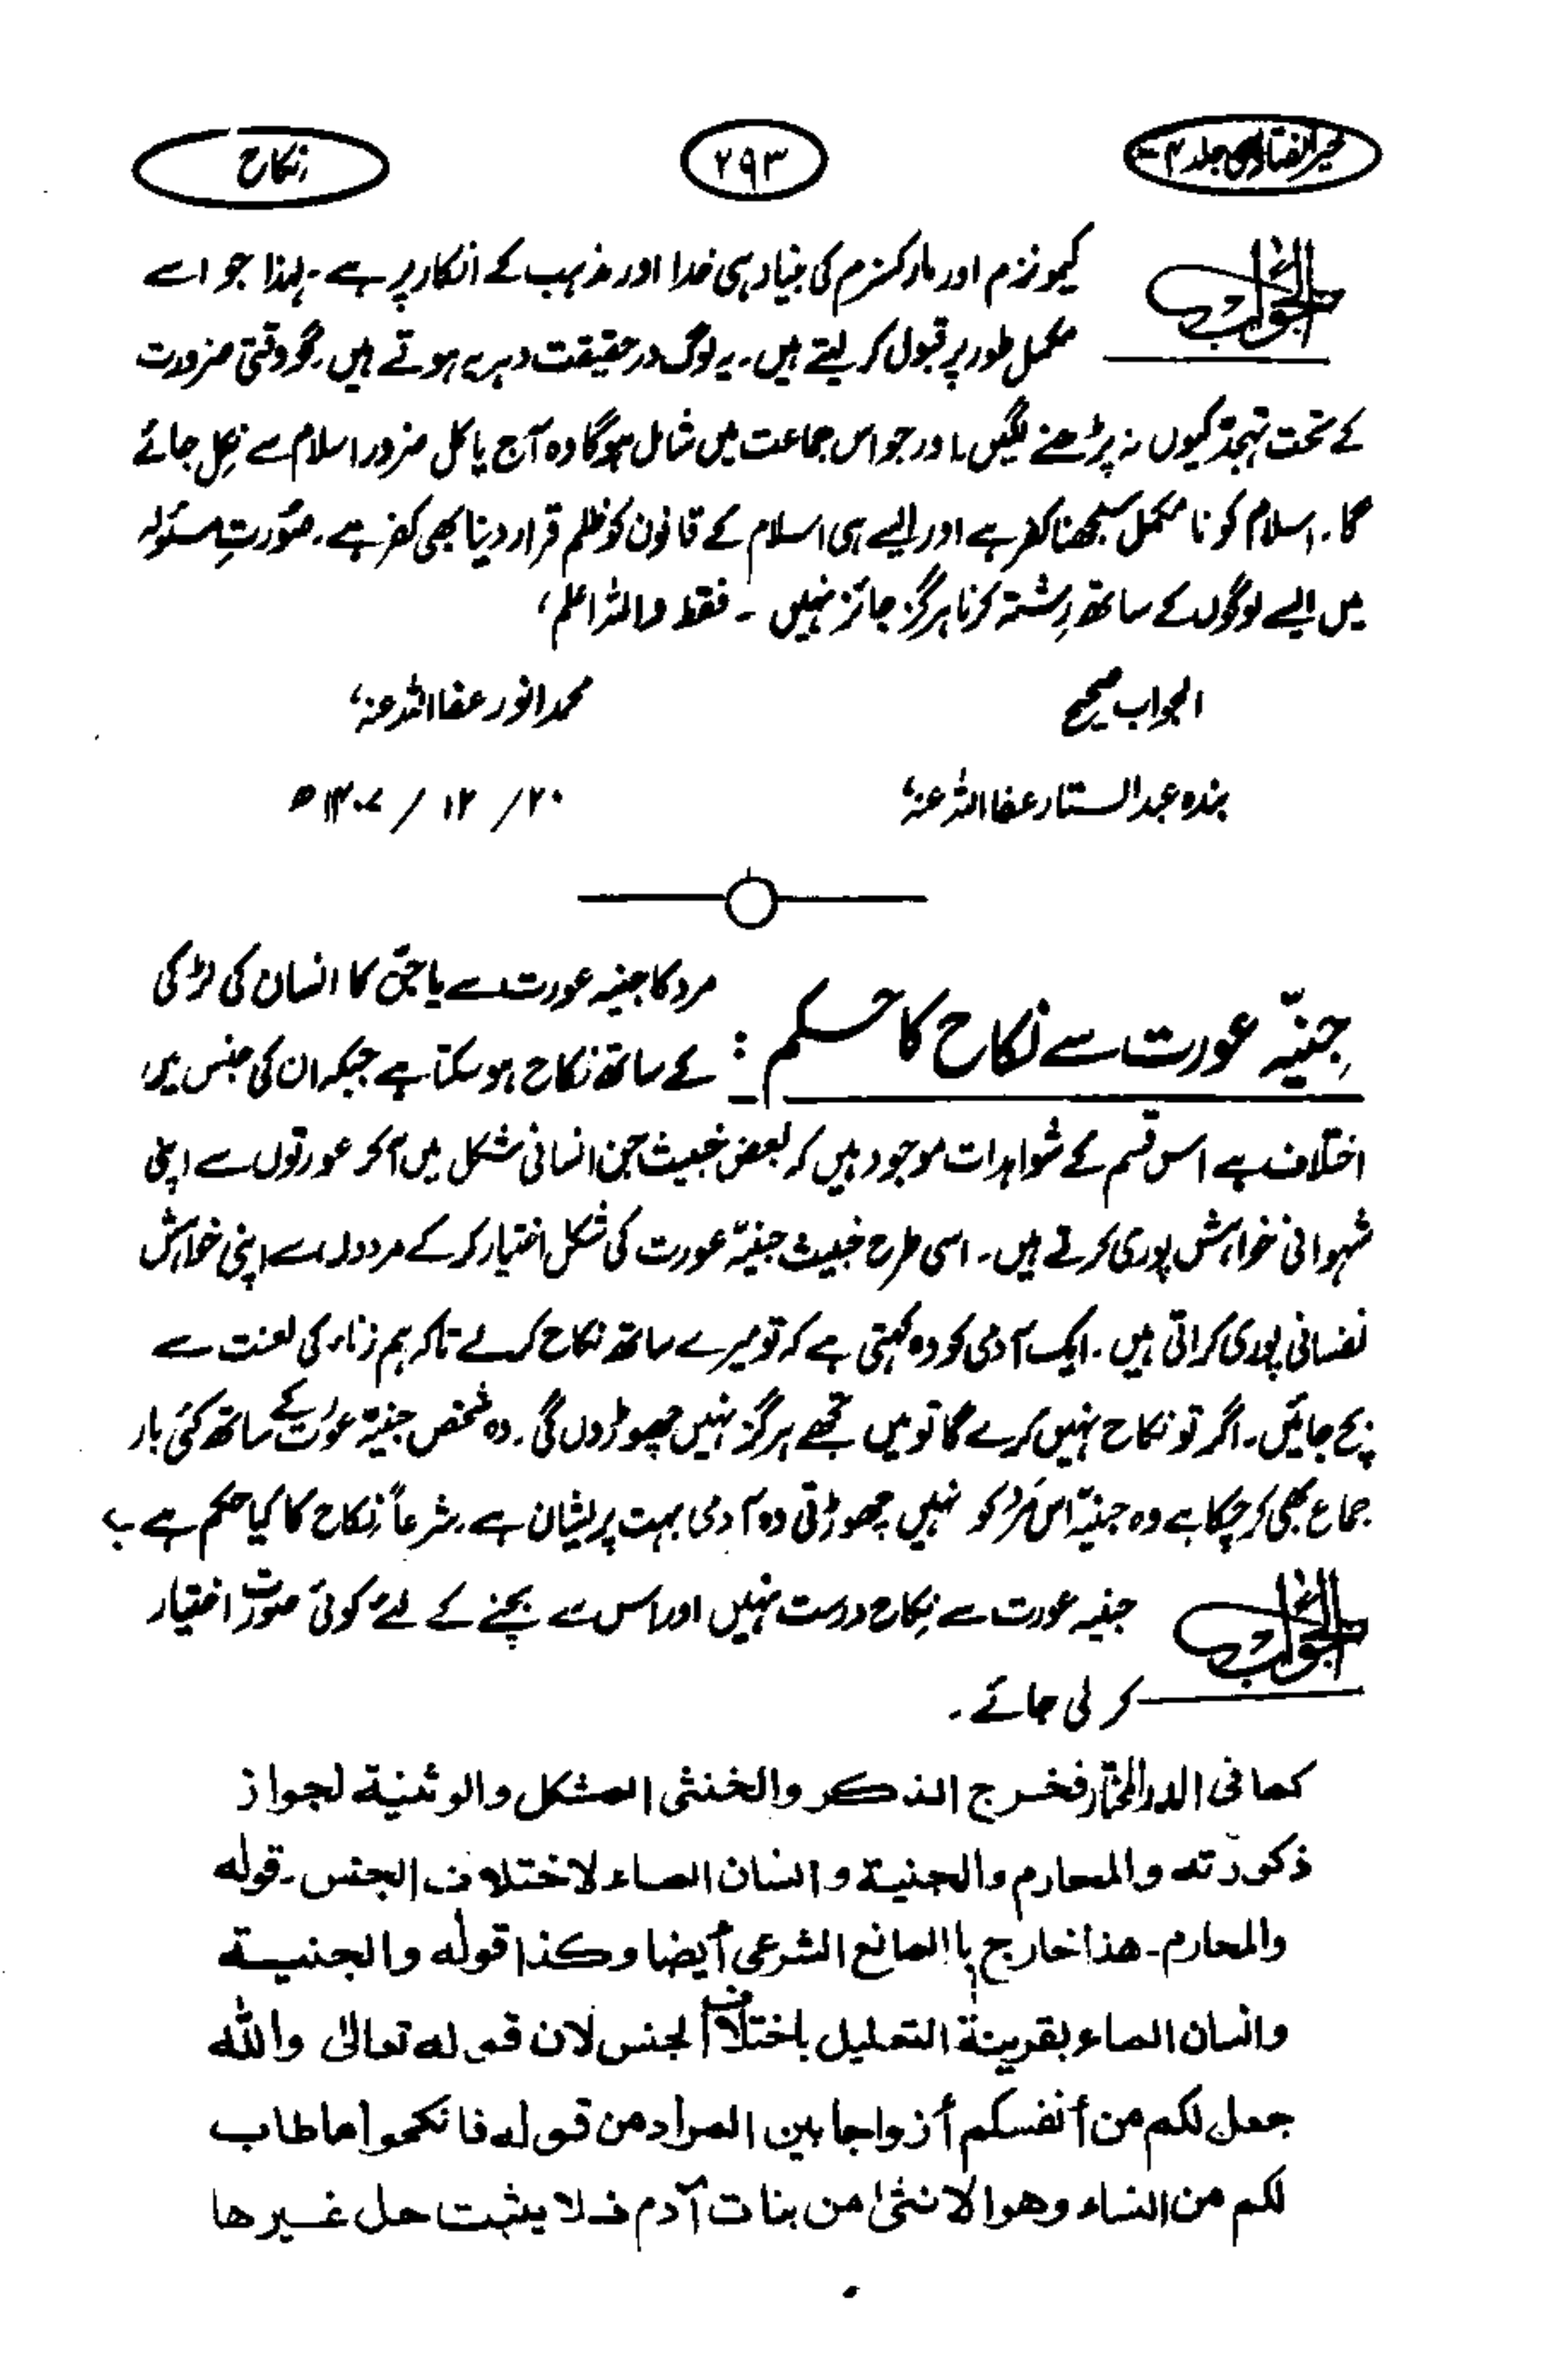 خیر الفتاوی جلد ۴ ۲۹۳ نکاح
الجواب کمیونزم اور مارکسزم کی بنیاد ہی خدا اور مذہب کے انکار پر ہے۔ لہٰذا جو اسے
مکمل طور پر قبول کر لیتے ہیں۔ یہ لوگ درحقیقت دہریہ ہوتے ہیں۔ گو وقتی ضرورت
کے تحت تہجد کیوں نہ پڑھنے لگیں۔ اور جو اس جماعت میں شامل ہوگا وہ آج یا کل ضرور اسلام سے نکل جائے
گا۔ اسلام کو نامکمل سمجھنا کفر ہے اور ایسے ہی اسلام کے قانون کو ظلم قرار دینا بھی کفر ہے۔ صورتِ مسئولہ
میں ایسے لوگوں کے ساتھ رشتہ کرنا ہرگز جائز نہیں ۔ فقط واللہ اعلم،
الجواب صحیح محمد انور عفا اللہ عنہ،
بندہ عبد الستار عفا اللہ عنہ، ۲۰/ ۱۲ / ۱۴۰۷ھ
جنیّہ عورت سے نکاح کا حکم :
مرد کا جنیہ عورت سے یا جن کا انسان کی لڑکی
کے ساتھ نکاح ہو سکتا ہے جبکہ ان کی جنس میں
اختلاف ہے اس قسم کے شواہدات موجود ہیں کہ بعض خبیث جن انسانی شکل میں آ کر عورتوں سے اپنی
شہوانی خواہش پوری کرتے ہیں۔ اسی طرح خبیث جنیّہ عورت کی شکل اختیار کر کے مردوں سے اپنی خواہش
نفسانی پوری کراتی ہیں۔ ایک آدمی کو وہ کہتی ہے کہ تو میرے ساتھ نکاح کر لے تاکہ ہم زناء کی لعنت سے
بچ جائیں۔ اگر تو نکاح نہیں کرے گا تو میں تجھے ہرگز نہیں چھوڑوں گی۔ وہ شخص جنیّہ عورت کے ساتھ کئی بار
جماع بھی کر چکا ہے وہ جنیّہ اس مرد کو نہیں چھوڑتی وہ آدمی بہت پریشان ہے۔ شرعاً نکاح کا کیا حکم ہے ؟
الجواب جنیہ عورت سے نکاح درست نہیں اور اس سے بچنے کے لئے کوئی صورت اختیار
کر لی جائے ۔
کما فی الدر المختار فخرج الذکر والخنثی المشکل والوثنیة لجواز
ذکورته والمحارم والجنیة وانسان الماء لاختلاف الجنس۔ قوله
والمحارم۔ هذا خارج باالمانع الشرعی أیضا وکذا قوله والجنیة
وانسان الماء بقرینة التعلیل باختلاف الجنس لان قوله تعالیٰ والله
جعل لکم من أنفسکم أزواجا بین المراد من قوله فانکحوا ما طاب
لکم من النساء وهوا لانثیٰ من بنات آدم فلا یثبت حل غیرها